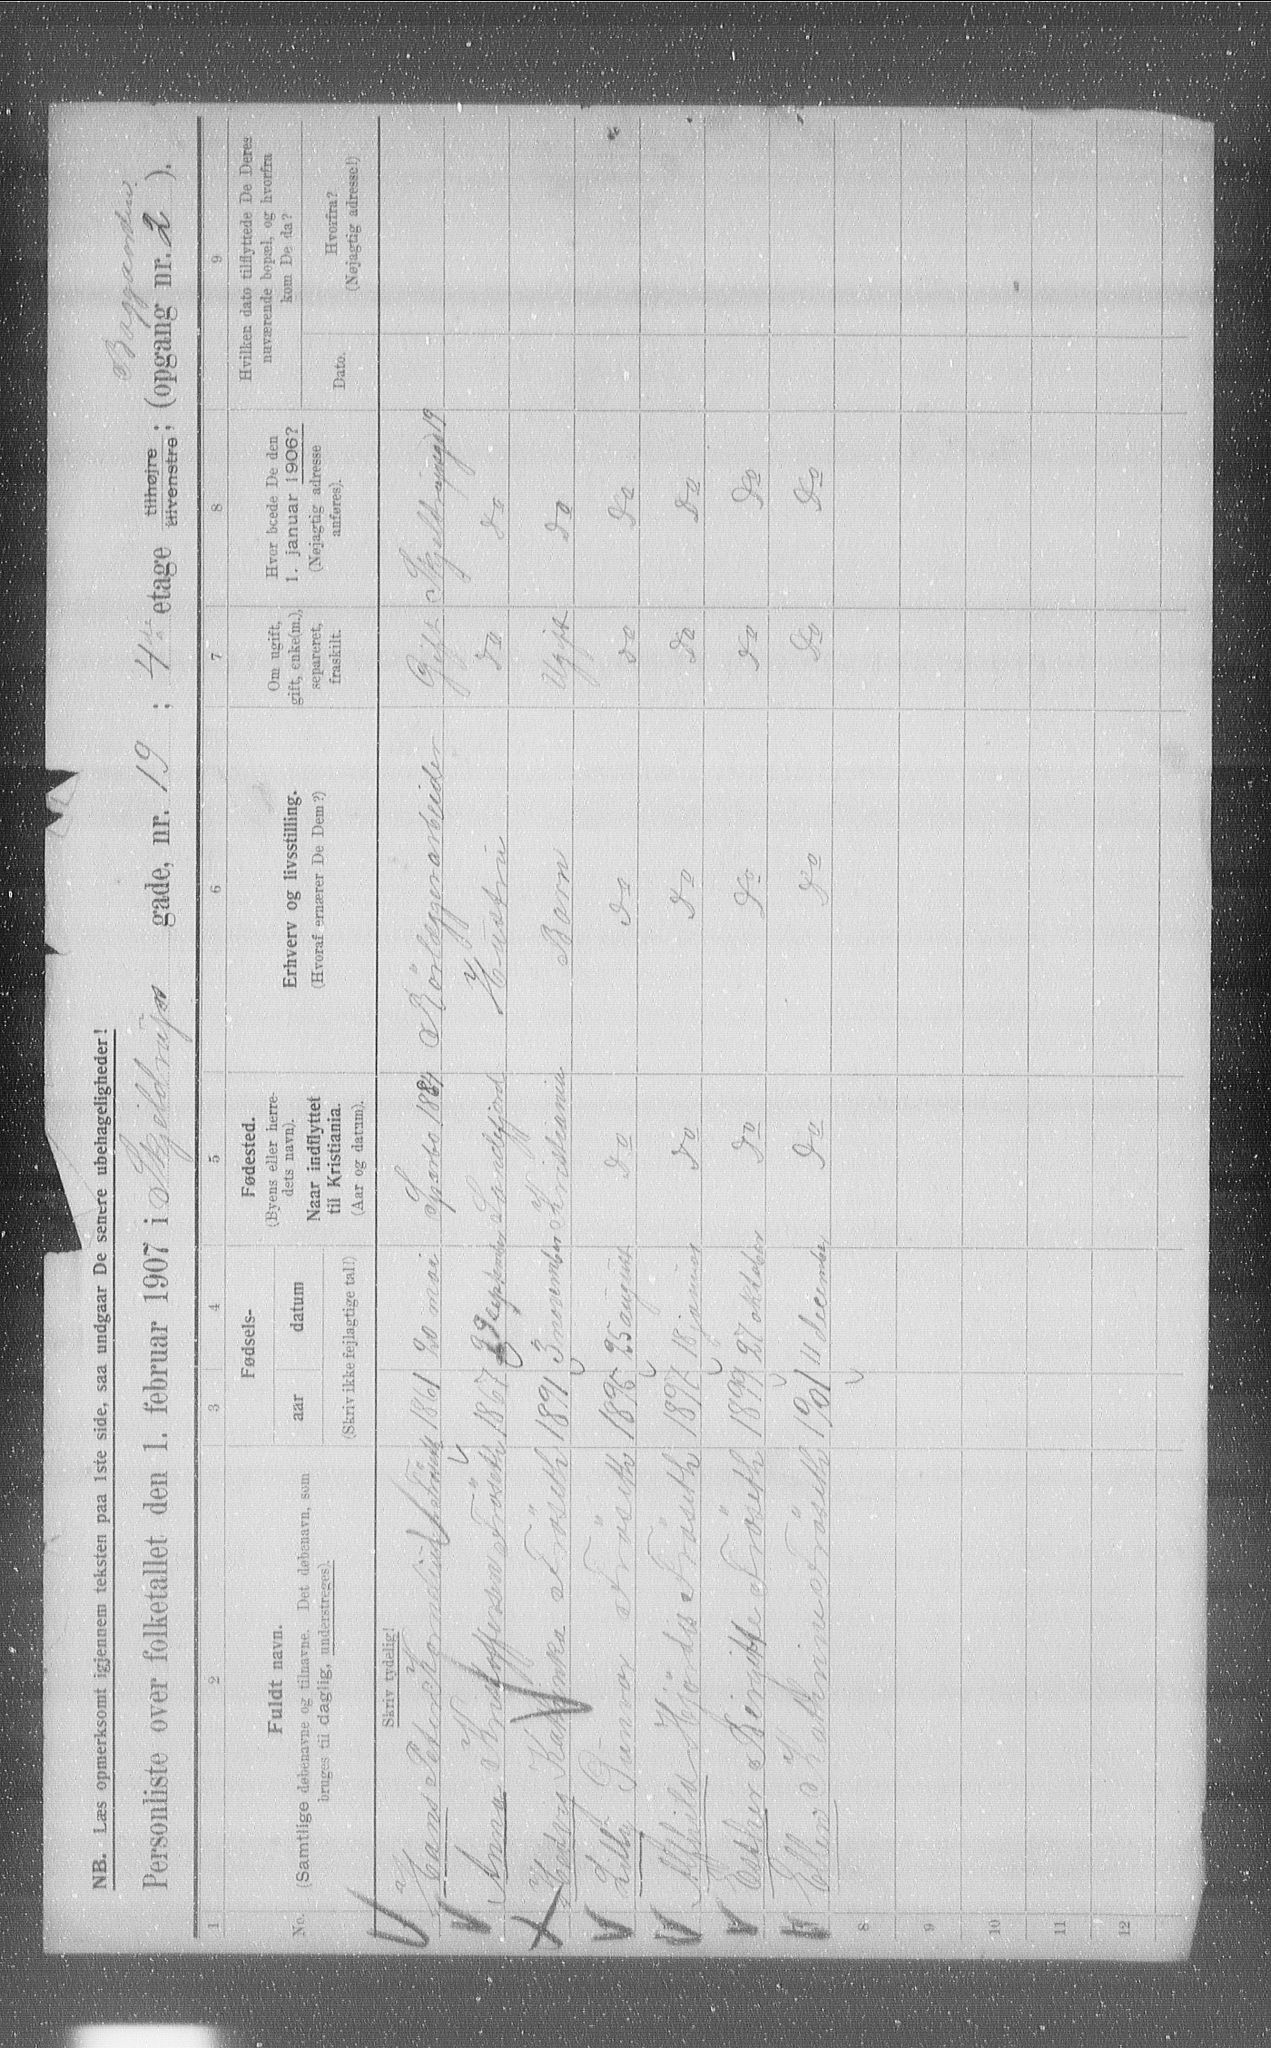 NB. Læs opmerksomt igjennem teksten paa 1ste side, saa undgaar De senere ubehageligheder!
Baggaarden.
Personliste over folketallet den 1. februar 1907 i Skjeldrups gade, nr. 19 ; 4de etage tilhøjre tilvenstre ; (opgang nr. 2 ).
1 2 3 4 5 6 7 8 9
No.
Fuldt navn.
(Samtlige døbenavne og tilnavne. Det døbenavn, som
bruges til daglig, understreges).
Fødsels-
aar datum
(Skriv ikke fejlagtige tal!)
Fødested.
(Byens eller herre-
dets navn).
Naar indflyttet
til Kristiania.
(Aar og datum).
Erhverv og livsstilling.
(Hvoraf ernærer De Dem?)
Om ugift,
gift, enke(m.),
separeret,
fraskilt.
Hvor boede De den
1. januar 1906?
(Nøjagtig adresse
anføres).
Hvilken dato tilflyttede De Deres
nuværende bopæl, og hvorfra
kom De da?
Dato.
Hvorfra?
(Nøjagtig adresse!)
Skriv tydelig!
Hans Peter 1861 20 mai Sparbo 1884 Rörlæggerarbeider Gift 19
Anna Kristoffersva Fröseth 1867 September Sandefjord Hustru do do
Hedvig Fröseth 1891 3 november Kristiania Barn Ugift do
Lilly Gunvor Fröseth 1895 25 august do do do do
Alfhild Hjördis Fröseth 1897 18 januar do do do do
Esther Birgitte Fröseth 1899 27 oktober do do do do
Ellen Kathrine Fröseth 1901 11 december do do do do
8
9
10
11
12